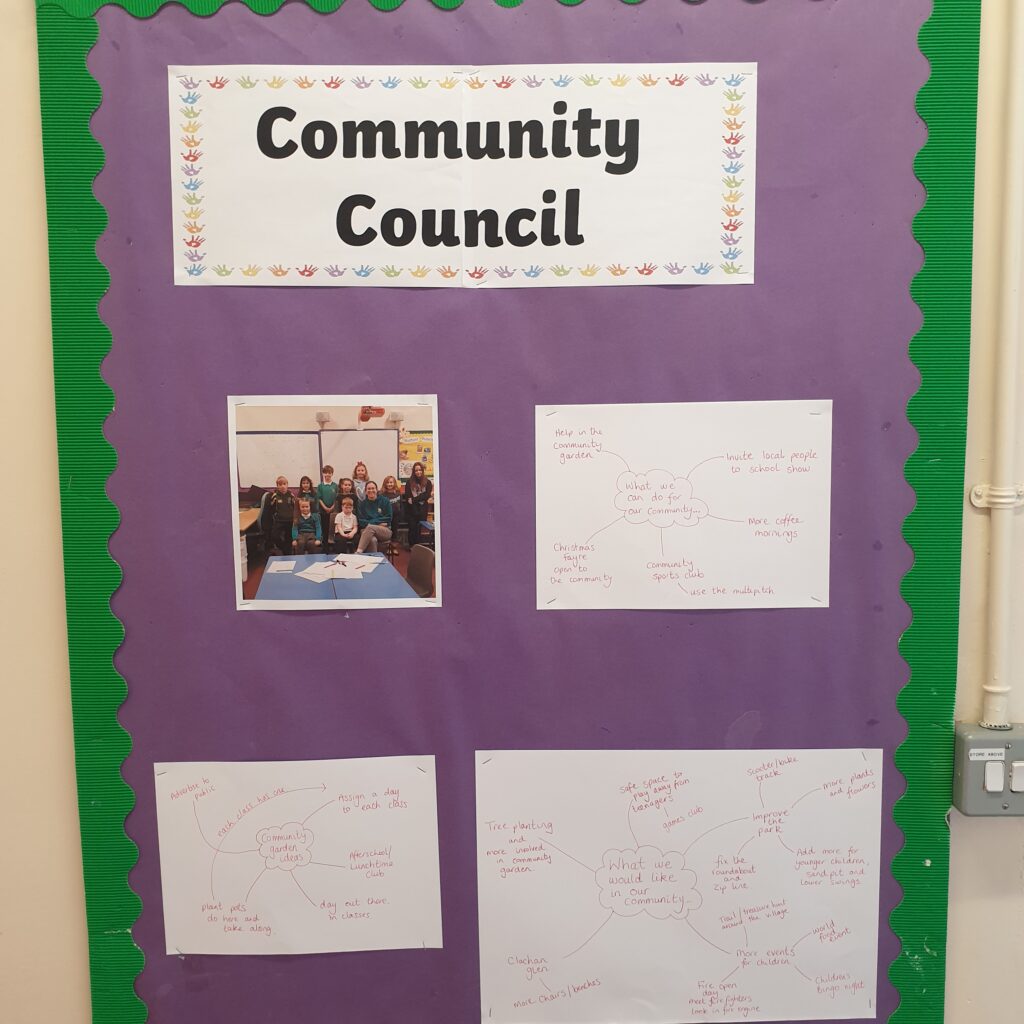 Community
Council
Help in the
Community
garden
Invite local people
to school show
What we
can do for
our community...
More coffee
mornings
Christmas
fayre
open to
the community
Community
sports club
use the multipitch
Advertise to
public
each class has one
Assign a day
to each class
Community
garden
ideas
Afterschool/
Lunchtime
club
plant pots
do here and
take along.
day out there.
in classes
Safe space to
play away from
teenagers
games club
Scooter/bike
track
more plants
and flowers
Improve
the
park
Tree planting
and
more involved
in community
garden.
What we
would like
in our
community...
fix the
roundabout
and
Zip line.
Add more for
younger children,
sand pit and
lower swings.
Trail/treasure hunt
around the village
More events
for children.
world
food
event
Clachan
glen
More chairs/benches
Fire open
day
meet fire fighters
look in fire engine
Children's
Bingo night
STORE ABOVE